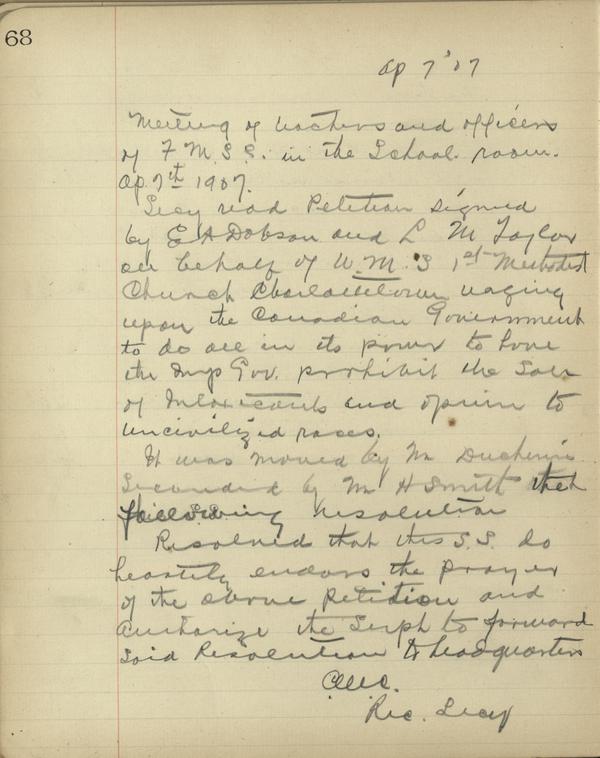 68
Ap 7'07
Meeting of teachers and officers
of F. M. S. S. in the School room.
Ap. 7th 1907.
Secy read Petition signed
by E A Dobson and L M Taylor
on behalf of W. M. S 1st Methodist
Church Charlottetown urging
upon the Canadian Government
to do all in its power to have
the Imp Gov. prohibit the Sale
of Intoxicants and opium to
uncivilized races.
It was moved by Mr
Seconded by Mr H Smith that
following resolution
Resolved that this S.S. do
heartily endors the prayer
of the above petition and
Authorize the Supt to forward
said Resolution to headquarters
Rec. Secy